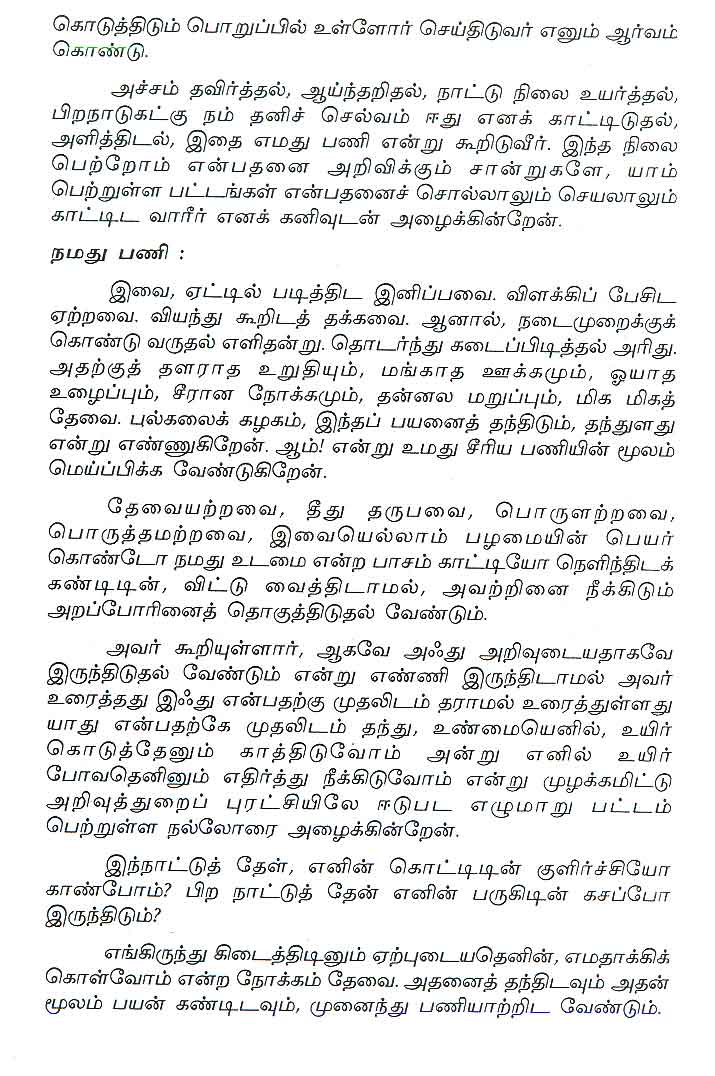 கொடுத்திடும் பொறுப்பில் உள்ளோர் செய்திடுவர் எனும் ஆர்வம்
கொண்டு.
அச்சம் தவிர்த்தல், ஆய்ந்தறிதல், நாட்டு நிலை உயர்த்தல்,
பிறநாடுகட்கு நம் தனிச் செல்வம் ஈது எனக் காட்டிடுதல்,
அளித்திடல், இதை எமது பணி என்று கூறிடுவீர். இந்த நிலை
பெற்றோம் என்பதனை அறிவிக்கும் சான்றுகளே, யாம்
பெற்றுள்ள பட்டங்கள் என்பதனைச் சொல்லாலும் செயலாலும்
காட்டிட வாரீர் எனக் கனிவுடன் அழைக்கின்றேன்.
நமது பணி :
இவை, ஏட்டில் படித்திட இனிப்பவை. விளக்கிப் பேசிட
ஏற்றவை. வியந்து கூறிடத் தக்கவை. ஆனால், நடைமுறைக்குக்
கொண்டு வருதல் எளிதன்று. தொடர்ந்து கடைப்பிடித்தல் அரிது.
அதற்குத் தளராத உறுதியும், மங்காத ஊக்கமும், ஓயாத
உழைப்பும், சீரான நோக்கமும், தன்னல மறுப்பும், மிக மிகத்
தேவை. புல்கலைக் கழகம், இந்தப் பயனைத் தந்திடும், தந்துளது
என்று எண்ணுகிறேன். ஆம்! என்று உமது சீரிய பணியின் மூலம்
மெய்ப்பிக்க வேண்டுகிறேன்.
தேவையற்றவை, தீது தருபவை, பொருளற்றவை,
பொருத்தமற்றவை, இவையெல்லாம் பழமையின் பெயர்
கொண்டோ நமது உடமை என்ற பாசம் காட்டியோ நெளிந்திடக்
கண்டிடின், விட்டு வைத்திடாமல், அவற்றினை நீக்கிடும்
அறப்போரினைத் தொகுத்திடுதல் வேண்டும்.
அவர் கூறியுள்ளார், ஆகவே அஃது அறிவுடையதாகவே
இருந்திடுதல் வேண்டும் என்று எண்ணி இருந்திடாமல் அவர்
உரைத்தது இஃது என்பதற்கு முதலிடம் தராமல் உரைத்துள்ளது
யாது என்பதற்கே முதலிடம் தந்து, உண்மையெனில், உயிர்
கொடுத்தேனும் காத்திடுவோம் அன்று எனில் உயிர்
போவதெனினும் எதிர்த்து நீக்கிடுவோம் என்று முழக்கமிட்டு
அறிவுத்துறைப் புரட்சியிலே ஈடுபட எழுமாறு பட்டம்
பெற்றுள்ள நல்லோரை அழைக்கின்றேன்.
இந்நாட்டுத் தேள், எனின் கொட்டிடின் குளிர்ச்சியோ
காண்போம்? பிற நாட்டுத் தேன் எனின் பருகிடின் கசப்போ
இருந்திடும்?
எங்கிருந்து கிடைத்திடினும் ஏற்புடையதெனின், எமதாக்கிக்
கொள்வோம் என்ற நோக்கம் தேவை. அதனைத் தந்திடவும் அதன்
மூலம் பயன் கண்டிடவும், முனைந்து பணியாற்றிட வேண்டும்.